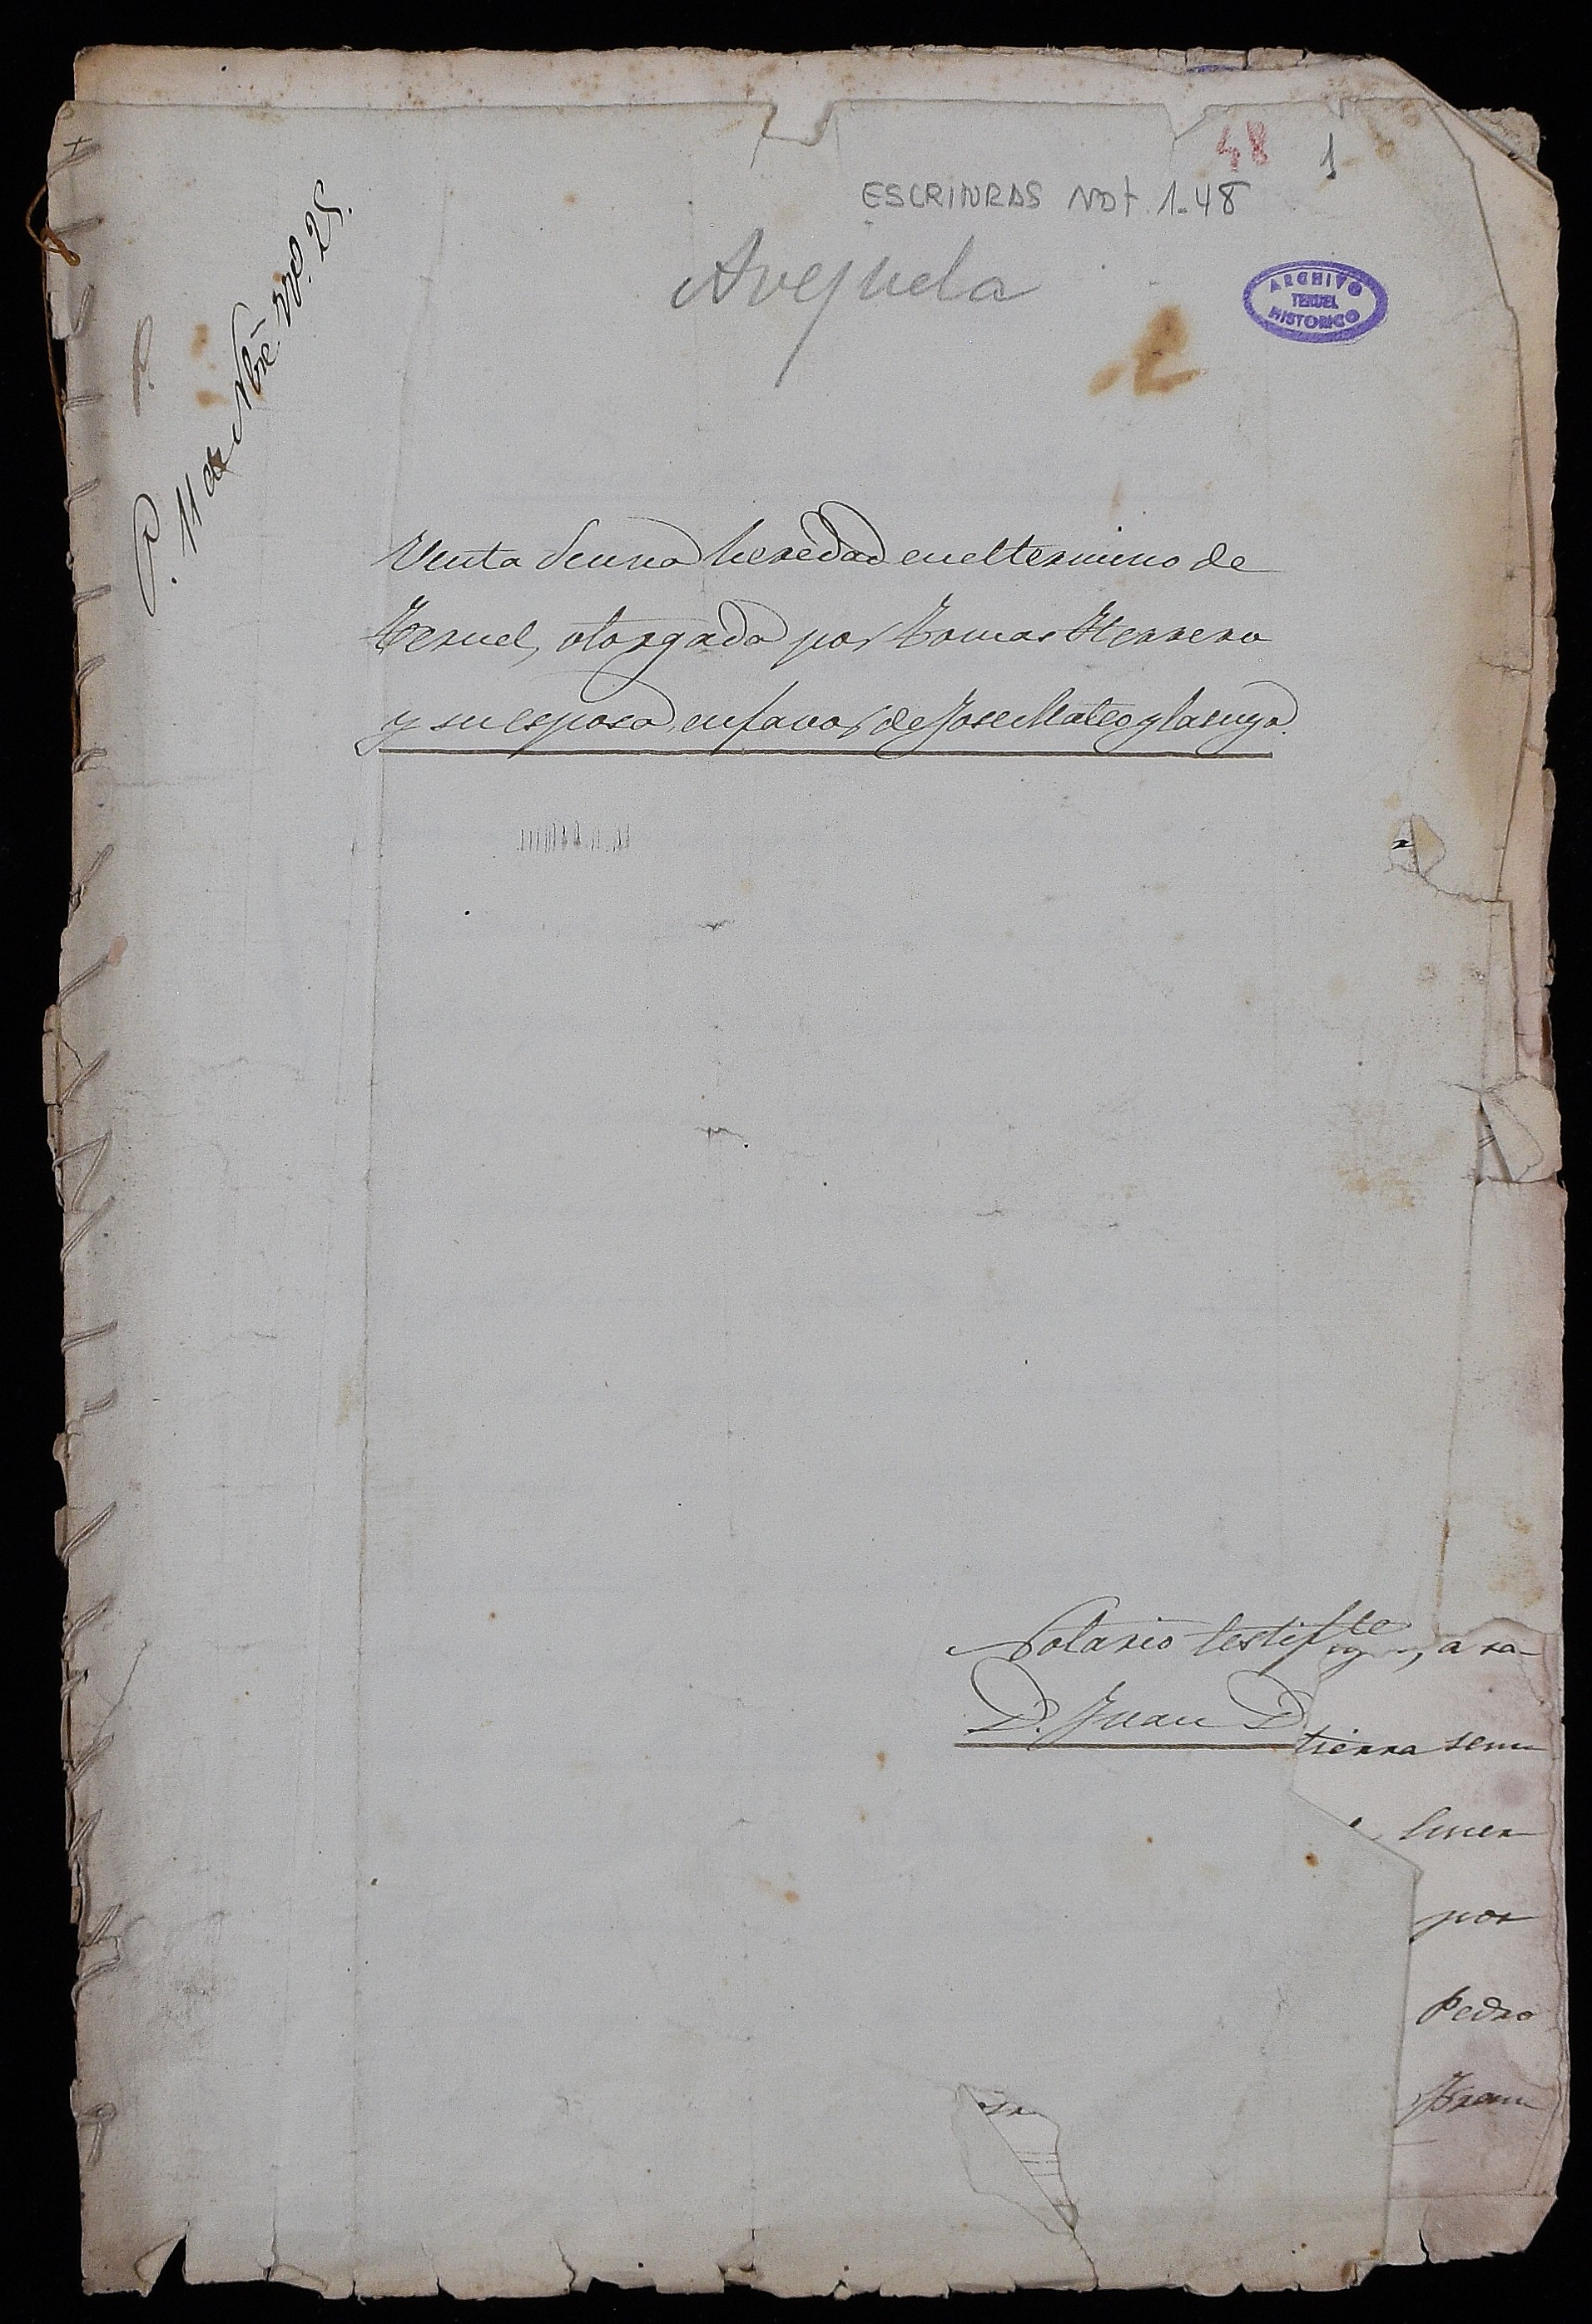 48 1
ESCRITURAS NOT. 1-48
Avejuela
ARCHIVO
TERUEL
HISTORICO
P.
P. 11 de Nbre. nº. 25.
Venta de una heredad en el termino de
Teruel, otorgada por Tomas Herrero
y su esposa, en favor de Jose Mateo y la suya.
Notario testifte
, a ra
D. Juan D
tierra sem
por
Pedro
Fran